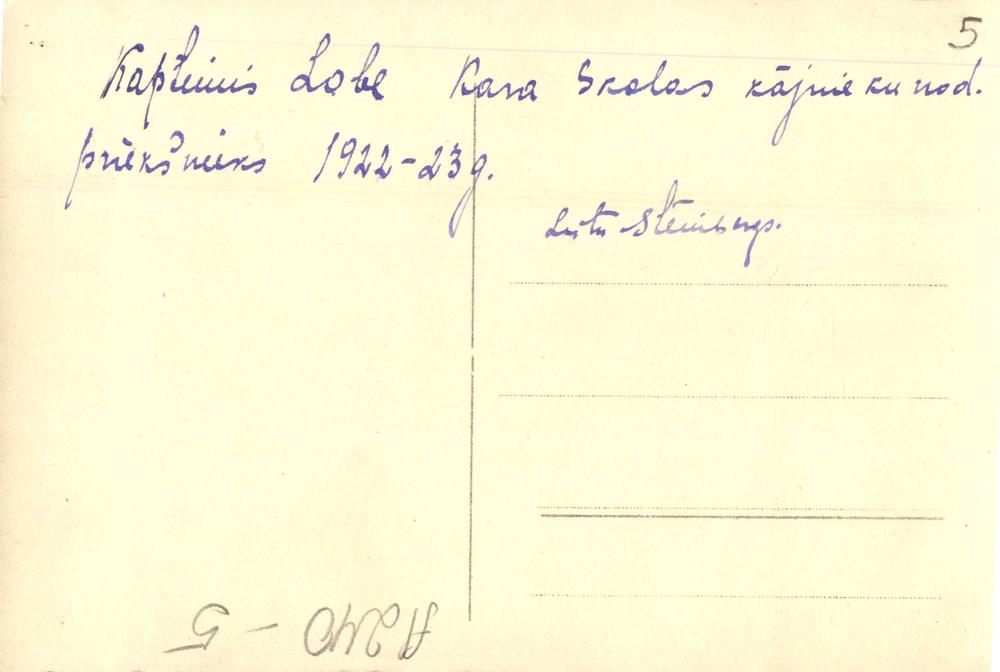 5
Kapteinis Lobe Kara Skolas kājnieku nod.
priekšnieks 1922-23g.
Steinbergs.
A240 - 5